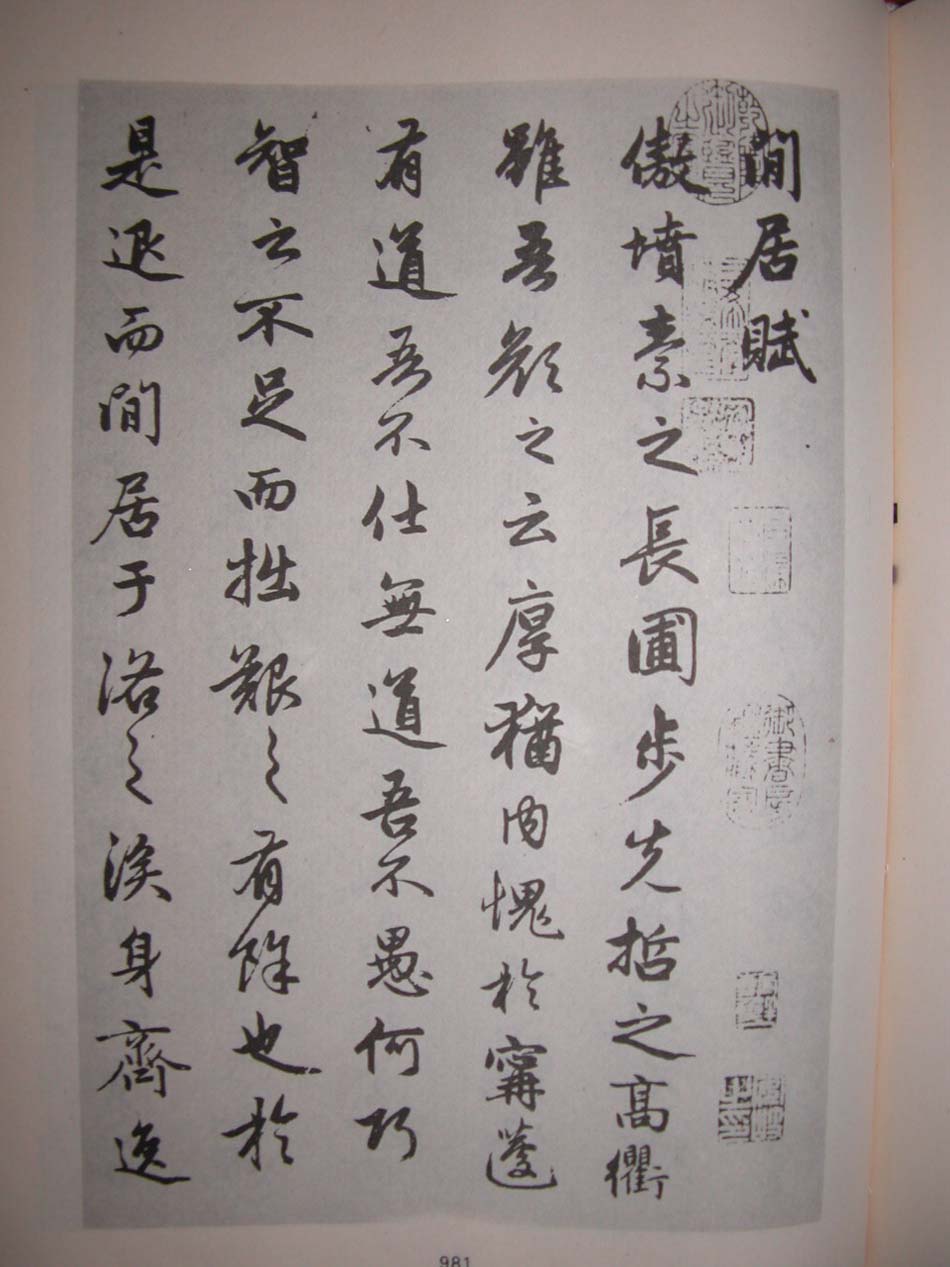 閒居賦
傲墳素之長圃步先哲之高衢
雖吾顏之云厚猶內愧於甯蘧
有道吾不仕無道吾不愚何巧
智之不足而拙艱之有餘也於
是退而閒居于洛之涘身齊逸
御書
981